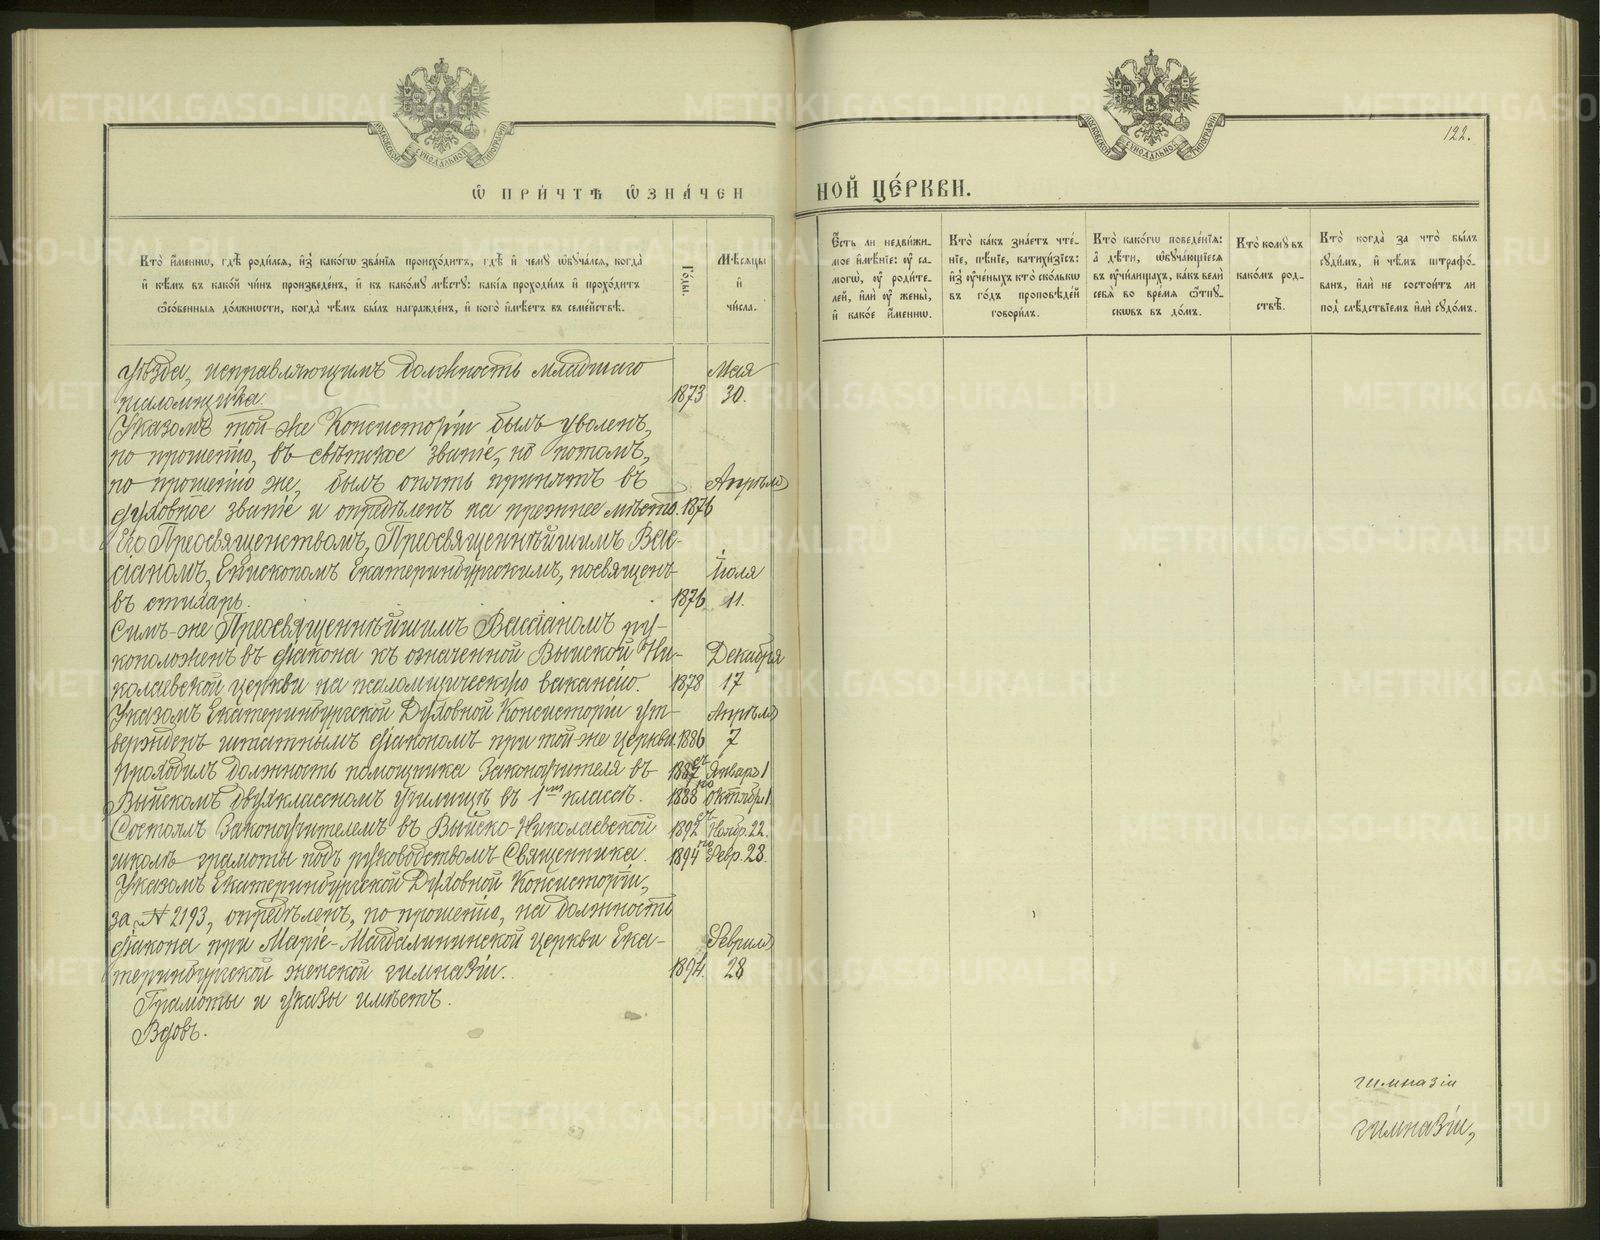 122.
Ѡ ПРИ́ЧТѢ ѠЗНА́ЧЕН
НОЙ ЦЕ́РКВИ.
Кто̀ и҆́меннѡ, гдѣ̀ роди́лсѧ, и҆з̾ како́гѡ зва́нїѧ происхо́дитъ, гдѣ̀ и҆ чемꙋ̀ ѡ҆бꙋча́лсѧ, когда̀
и҆ кѣ́мъ въ како́й чи́нъ произведе́нъ, и҆ къ како́мꙋ мѣ́стꙋ: какі̑ѧ проходи́лъ и҆ прохо́дитъ
ѻ҆со́бенныѧ до́лжности, когда̀ чѣ́мъ бы́лъ награжде́нъ, и҆ кого̀ и҆мѣ́етъ въ семе́йствѣ.
Го́ды.
Мѣ́сѧцы
и҆
чи́сла.
Е҆́сть ли недви́жи-
мое и҆мѣ́нїе: ᲂу҆ са-
могѡ̀, ᲂу҆ роди́те-
лей, и҆лѝ ᲂу҆ жены̀,
и҆ како́е и҆́меннѡ.
Кто̀ ка́къ зна́етъ чте́-
нїе, пѣ́нїе, катихи́зїсъ:
и҆з̾ ᲂу҆че́ныхъ кто̀ ско́лькѡ
въ го́дъ проповѣ́дей
говори́лъ.
Кто̀ како́гѡ поведе́нїѧ:
а҆ дѣ́ти, ѡ҆бꙋча́ющїесѧ
въ ᲂу҆чи́лищахъ, ка́къ велѝ
себѧ̀ во вре́мѧ ѿпꙋ-
скѡвъ въ до́мъ.
Кто̀ комꙋ̀ въ
како́мъ род-
ствѣ̀.
Кто̀ когда̀ за что̀ бы́лъ
сꙋди́мъ, и҆ чѣ́мъ штрафо́-
ванъ, и҆лѝ не состои́тъ ли
под̾ слѣ́дствїемъ и҆лѝ сꙋдо́мъ.
уѣзда, исправляющимъ должность младшаго Мая
псаломщика. 1873 30.
Указомъ той-же Консисторіи былъ уволенъ,
по прошенію, въ свѣтское званіе, но потомъ,
по прошенію же, былъ опять принятъ въ Апрѣля
духовное званіе и опредѣленъ на прежнее мѣсто. 1876
Его Преосвященствомъ, Преосвященнѣйшимъ Вас-
сіаномъ, Епископомъ Екатеринбургскимъ, посвященъ Іюля
въ стихарь. 1876 11.
Симъ-же Преосвященнѣйшимъ Вассіаномъ ру-
коположенъ въ діакона къ означенной Выйской Ни- Декабря
колаевской церкви на псаломщическую вакансію. 1878 17
Указомъ Екатеринбургской Духовной Консисторіи ут- Апрѣля
вержденъ штатнымъ діакономъ при той-же церкви. 1886 7
Проходилъ должность помощника Законоучителя въ 1887 съ Январ. 1
Выйскомъ двухклассномъ училищѣ въ 1мъ классѣ. 1888 по Октябр. 1
Состоялъ Законоучителемъ въ Выйско-Николаевской 1892 съ Ноябр. 22.
школѣ грамоты подъ руководствомъ Священника. 1894 по Февр. 28.
Указомъ Екатеринбургской Духовной Консисторіи,
за № 2193, опредѣленъ, по прошенію, на должность
діакона при Маріе-Магдалининской церкви Ека- Февраля
теринбургской женской гимназіи. 1894. 28
Грамоты и указы имѣетъ.
Вдовъ.
гимназіи
гимназіи,
METRIKI.GASO-URAL.RU